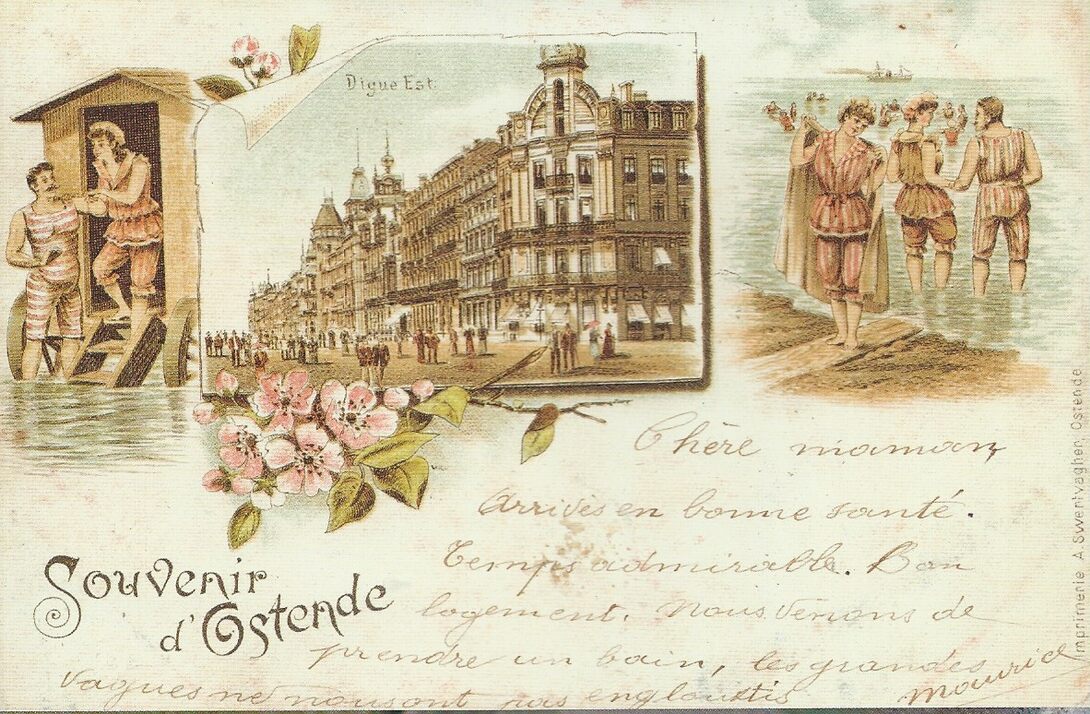 Digue Est.
Souvenir
d'Ostende
Chère maman
Arrivés en bonne santé.
Temps admirable. Bon
logement. Nous venons de
prendre un bain, les grandes
vagues ne nous ont pas engloutis
Maurice
Imprimerie A. Swertvagher, Ostende